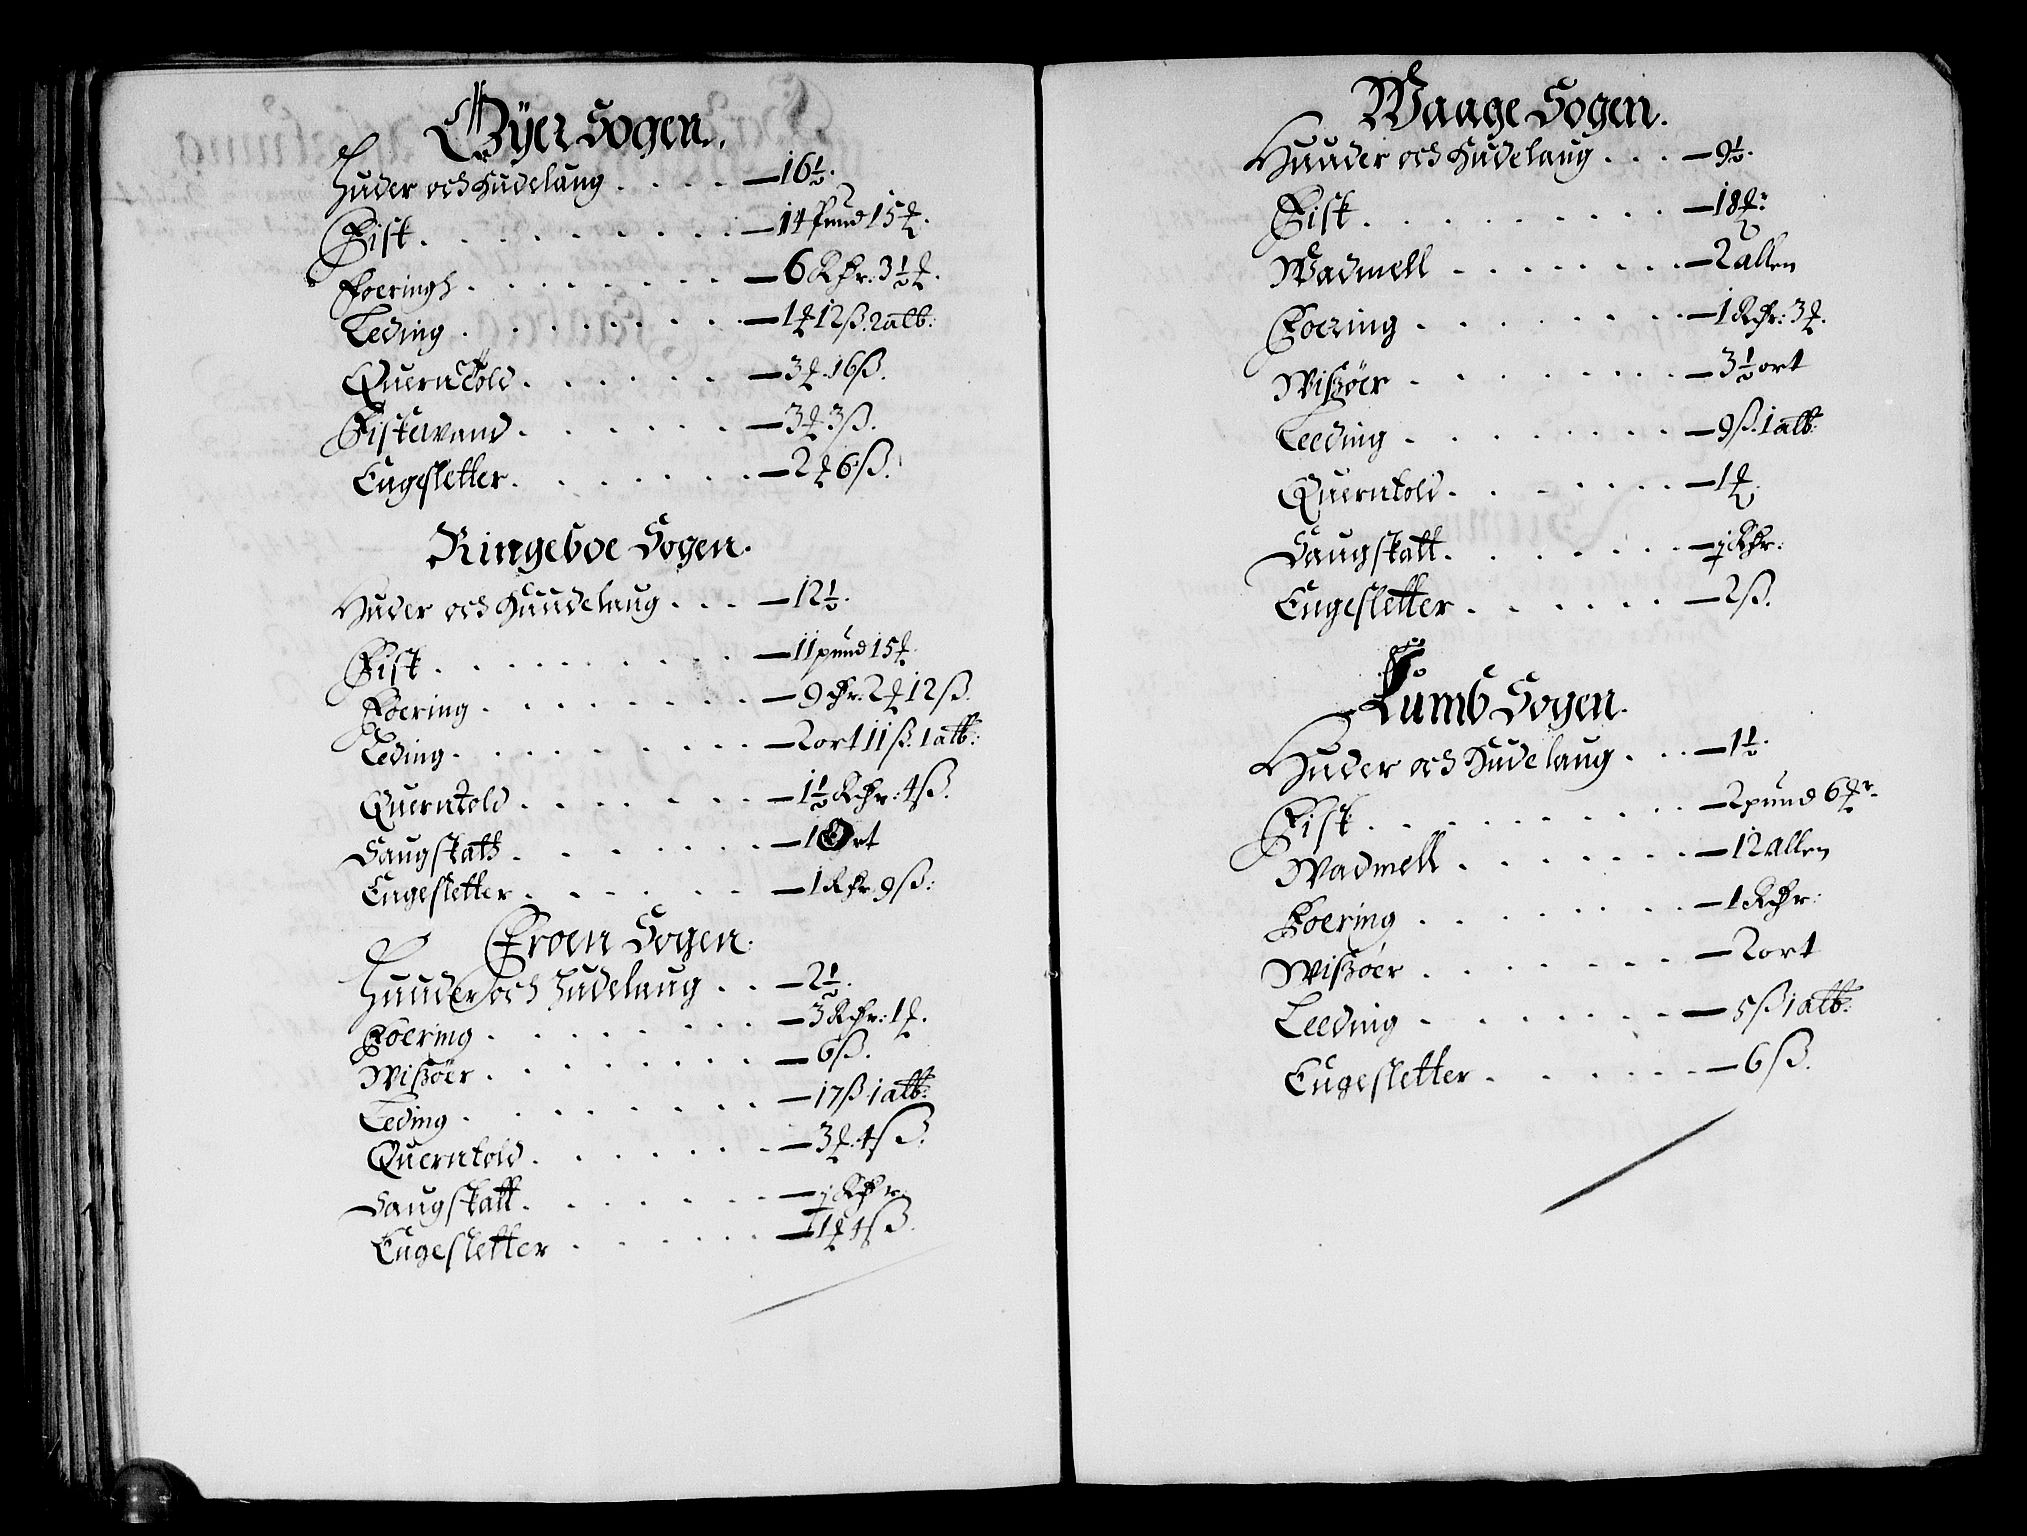 Øÿer Sogen.
Huder och Hudelaug . . . . — 16½.
Fisk . . . . . . . . . — 14 Pund 15 ℔.
Foeringh . . . . . . . . — 6 Rdr: 3½ ℔.
Leding . . . . . . . . — 1 ℔ 12 ß. 2 alb:
Querntold . . . . . . — 3 ℔ 16 ß.
Fiskevand . . . . . . — 3 ℔ 3 ß.
Engesletter . . . . . . — 2 ℔ 6 ß.
Ringeboe Sogen.
Huder och Huudelaug . . . — 12½.
Fisk . . . . . . . . — 11 pund 15 ℔.
Foering . . . . . . . — 9 dr. 2 ℔ 12 ß.
Leding . . . . . . . . — 2 ort 11 ß. 1 alb:
Querntold . . . . . . — 1½ Rdr: 4 ß.
Saugskatt . . . . . . — 1 Ort
Engesletter . . . . . — 1 Rdr. 9 ß:
Froen Sogen.
Huuder och Hudelaug . . — 2½.
Foering . . . . . . . — 3 Rdr: 1 ℔.
Wißøer . . . . . . . — 6 ß.
Leding . . . . . . . . — 17 ß 1 alb:
Querntold . . . . . . — 3 ℔. 4 ß.
Saugskatt . . . . . . — j Rdr.
Engesletter . . . . . . — 1 ℔ 4 ß.
Waage Sogen.
Huuder och Hudelaug . . . — 9½.
Fisk . . . . . . . . — 18 ℔:
Wadmell . . . . . . . — 2 allen
Foering . . . . . . . — 1 Rdr: 3 ℔.
Wißøer . . . . . . . — 3½ ort
Leeding . . . . . . . — 9 ß. 1 alb:
Querntold . . . . . . — 1 ℔.
Saugskatt . . . . . . — j Rdr:
Engesletter . . . . . . — 2 ß.
Lumb Sogen.
Huder och Hudelaug . . . — 1½.
Fisk . . . . . . . . — 2 pund 6 ℔r.
Wadmell . . . . . . . — 12 allen
Foering . . . . . . . — 1 Rdr:
Wißøer . . . . . . . — 2 ort
Leeding . . . . . . . — 5 ß 1 alb:
Engesletter . . . . . . — 6 ß.